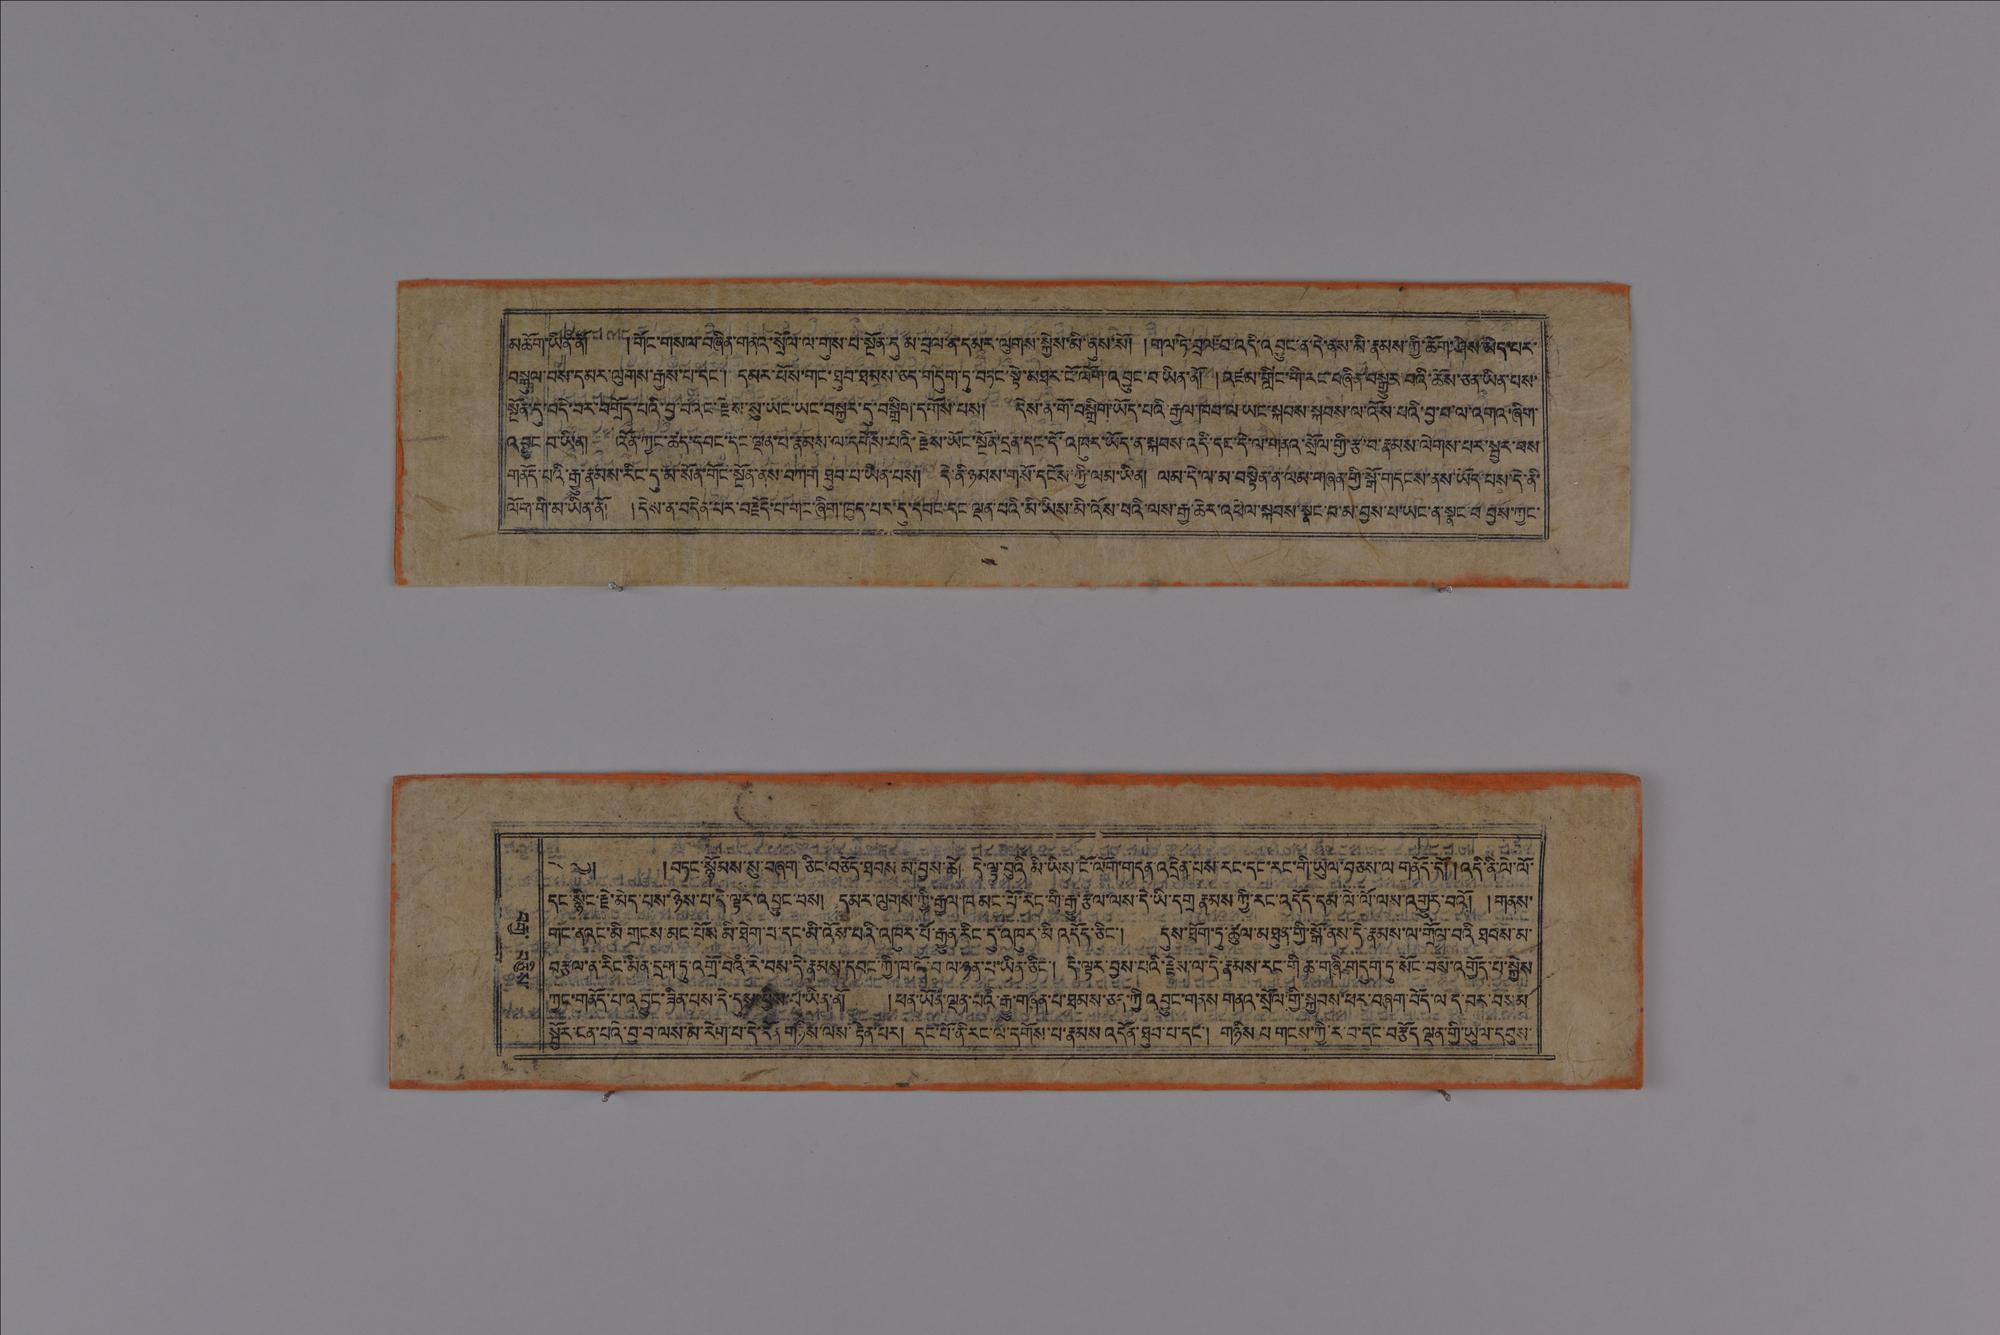 མཆོག་ཡིན་ནོ། །གོང་གསལ་བཞིན་གནའ་སྲོལ་ལ་གུས་པ་སྔོན་དུ་མ་བྲལ་ན་དམར་ལུགས་སྐྱེས་མི་ནུས་སོ། །གལ་ཏེ་བྲལ་བ་འདི་འབྱུང་ན་དེ་ནས་མི་རྣམས་ཀྱི་ཚོག་ཤེས་མེད་པར་
བསྐུལ་བས་དམར་ལུགས་རྒྱས་པ་དང༌། དམར་པོས་གང་ཐུབ་ཐམས་ཅད་གདུག་ཏུ་བཏང་སྟེ་མཐར་ངོ་ལོག་འབྱུང་བ་ཡིན་ནོ། །འཛམ་གླིང་གི་རང་བཞིན་བསྒྱུར་བའི་ཆོས་ཅན་ཡིན་པས་
སྔོན་དུ་བདེ་བར་བགྲོད་པའི་བྱ་བའང་རྗེས་སུ་ཡང་ཡང་བསྐྱར་དུ་བསྒྲིག་དགོས་པས། དེས་ན་གོ་བསྒྲིག་ཡོད་པའི་རྒྱལ་ཁབ་ལ་ཡང་སྐབས་སྐབས་ལ་འོས་པའི་བྱ་བ་ལ་འགའ་ཞིག་
འབྱུང་བ་ཡིན། འོན་ཀྱང་ཚད་དབང་དང་ལྡན་པ་རྣམས་ལ་དགོས་པའི་རྗེས་ཡོང་སྔོན་དྲན་དང་དོ་འཁུར་ཡོད་ན་སྐབས་འདི་དང་དེ་ལ་གནའ་སྲོལ་གྱི་རྩ་བ་རྣམས་ལེགས་པར་སྦྱར་བས་
གནོད་པའི་རྒྱུ་རྣམས་རིང་དུ་མ་སོན་གོང་སྔོན་ནས་བཀག་ཐུབ་པ་ཡིན་པས། དེ་ནི་ཉམས་གསོ་དངོས་ཀྱི་ལམ་ཡིན། ལམ་དེ་ལ་མ་བསྟེན་ན་ལམ་གཞན་གྱི་སྒོ་གདངས་ནས་ཡོད་པས་དེ་ནི་
ལོག་གི་མ་ཡིན་ནོ། །དེས་ན་བདེན་པར་བརྗོད་པ་གང་ཞིག་ཁྱད་པར་དུ་དབང་དང་ལྡན་པའི་མི་ཡིས་མི་འོས་པའི་ལས་རྒྱ་ཆེར་འཕེལ་སྐབས་སྣང་བ་མ་བྱས་པ་ཡང་ན་སྣང་བ་བྱས་ཀྱང་
༄༅། །བཏང་སྙོམས་སུ་བཞག་ཅིང་བཅོད་ཐབས་མ་བྱས་ཚེ། དེ་ལྟ་བུའི་མི་ཡིས་ངོ་ལོག་གདན་འདྲེན་པས་རང་དང་རང་གི་ཡུལ་བཅས་ལ་གནོད་དོ། །འདི་ནི་ལེ་ལོ་
དང་སྙིང་རྗེ་མེད་པས་ཉེས་པ་དེ་ལྟར་འབྱུང་བས། དམར་ལུགས་ཀྱི་རྒྱལ་ཁ་མང་པོ་རང་གི་རྒྱུ་རྩལ་ལས་དེ་ཡི་དགྲ་རྣམས་ཀྱི་རང་འདོད་དམ་ལེ་ལོ་ལས་འགྱུར་བའོ། །གནས་
གང་ནའང་མི་གྲངས་མང་པོས་མི་ཐེག་པ་དང་མི་འོས་པའི་འཁུར་པོ་རྒྱུན་རིང་དུ་འཁུར་མི་འདོད་ཅིང༌། དུས་ཐོག་ཏུ་ཚུལ་མཐུན་གྱི་སྒོ་ནས་དེ་རྣམས་ལ་གྲོལ་བའི་ཐབས་མ་
བརྩལ་ན་རིང་མིན་དྲག་ཏུ་འགྲོ་བའི་རེ་བས་དེ་རྣམས་དབང་ཀྱི་ཁ་ཏ་བ་ལ་ཉན་པ་ཡིན་ཅིང༌། དེ་ལྟར་བྱས་པའི་རྗེས་ལ་དེ་རྣམས་རང་གི་ཆ་གཞི་གདུག་ཏུ་སོང་བས་འགྱོད་པ་སྐྱེས་
ཀྱང་གནོད་པ་འབྱུང་ཟིན་པས་དེ་དུས་ཕྱིས་པ་ཡིན་ནོ། །ཕན་ཡོན་ལྡན་པའི་རྒྱུ་གཞན་པ་ཐམས་ཅད་ཀྱི་འབྱུང་གནས་གནའ་སྲོལ་གྱི་སྐྱབས་ཕར་བཞག་བོད་ལ་ད་བར་བསམ་
སྦྱོར་ངན་པའི་བྱ་བ་ལས་མ་རེག་པ་དེ་དོན་གཉིས་ལས་རྟེན་པར། དང་པོ་ནི་རང་ལ་དགོས་པ་རྣམས་འདོན་ཐུབ་པ་དང༌། གཉིས་པ་གངས་ཀྱི་ར་བ་དང་བརྩོད་ལྡན་གྱི་ཡུལ་དབུས་